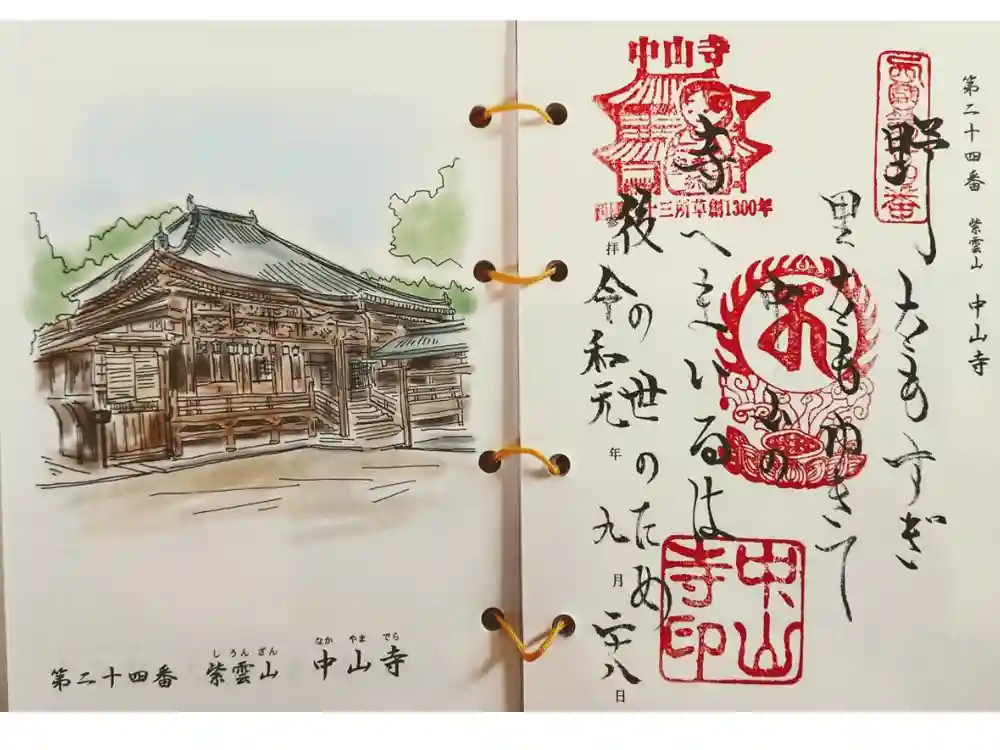 しうんざん なかやまでら
第二十四番 紫雲山 中山寺
第二十四番 紫雲山 中山寺
野をもすぎ
里をもゆきて
中山の
寺へまいるは
後の世のため
参拝 令和元年 九月 二十八日
中山寺
十三所草創1300年
中山寺印